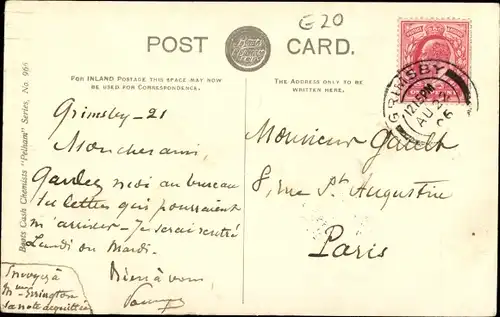 G20
POST CARD.
FOR INLAND POSTAGE THIS SPACE MAY NOW
BE USED FOR CORRESPONDENCE.
THE ADDRESS ONLY TO BE
WRITTEN HERE.
Boots Cash Chemists "Pelham" Series, No. 966
GRIMSBY
12.15PM
AU 21
06
Grimsby - 21
Mon cher ami,
Gardez moi au bureau
les lettres qui pourraient
m'arriver - Je serai rentré
Lundi ou Mardi.
Bien à vous,
Envoyez à
Mme Errington
sa note acquittée
Monsieur Gault
8, Rue St Augustin
Paris